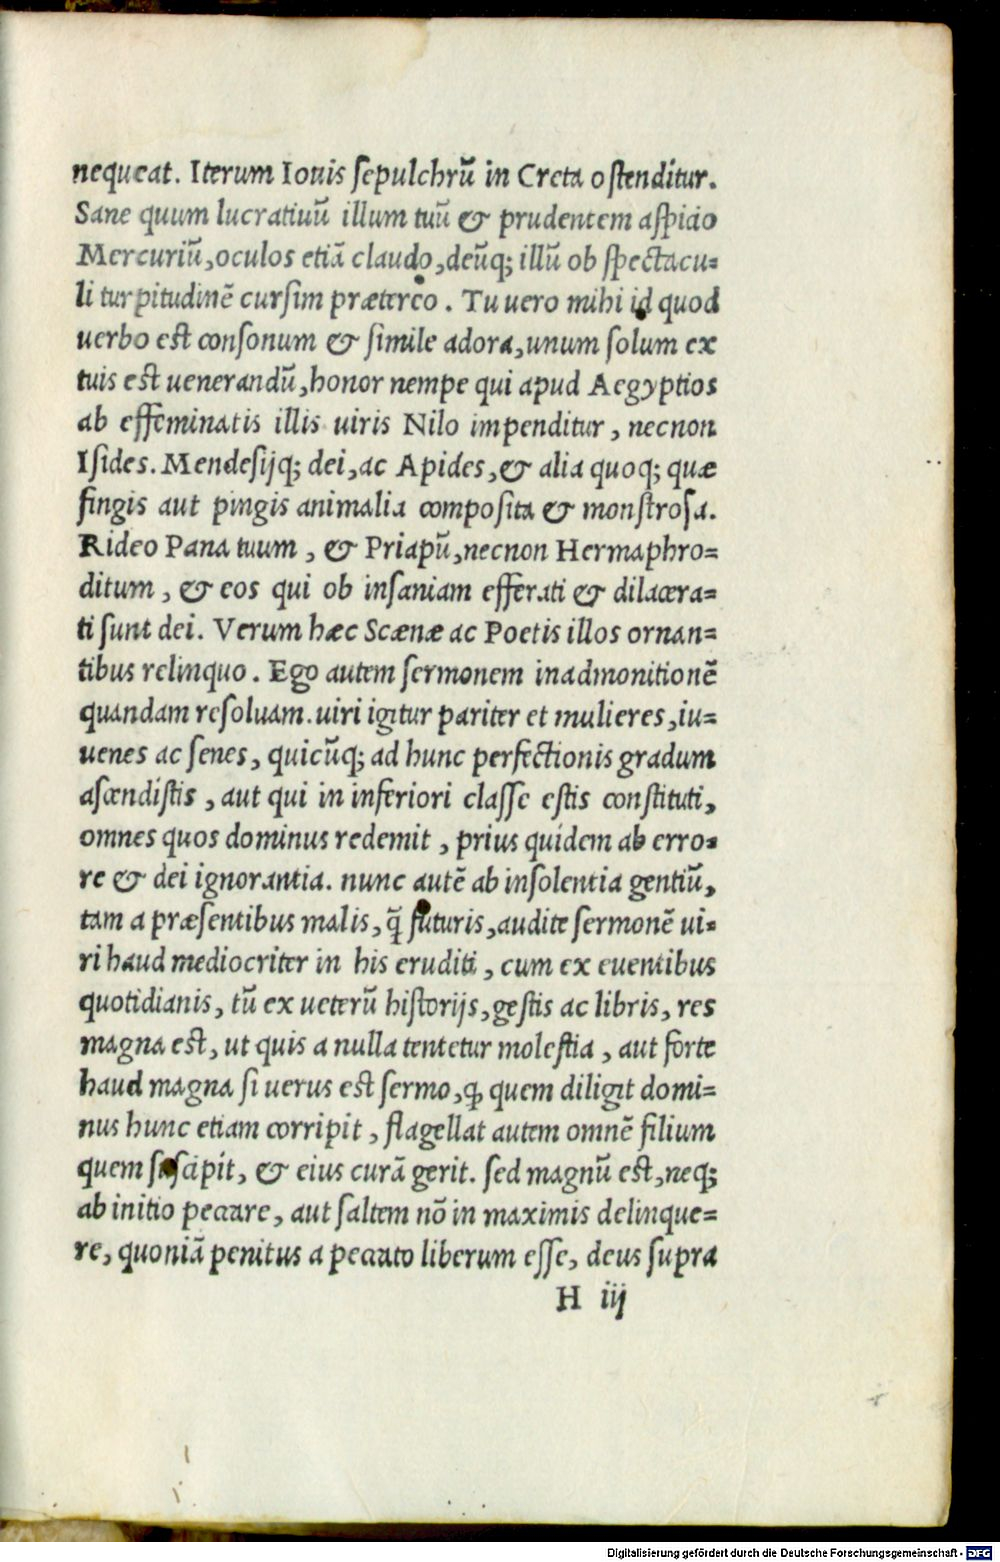 nequeat. Iterum Iouis ſepulchrũ in Creta oſtenditur.
Sane quum lucratiuũ illum tuũ & prudentem aſpicio
Mercuriũ, oculos etiã claudo, deũq; illũ ob ſpectacu-
li turpitudinẽ curſim prætereo. Tu uero mihi id quod
uerbo est conſonum & ſimile adora, unum ſolum ex
tuis est uenerandũ, honor nempe qui apud Aegyptios
ab effeminatis illis uiris Nilo impenditur, necnon
Iſides. Mendesijq; dei, ac Apides, & alia quoq; quæ
fingis aut pingis animalia compoſita & monſtroſa.
Rideo Pana tuum, & Priapũ, necnon Hermaphro-
ditum, & eos qui ob inſaniam efferati & dilacera-
ti ſunt dei. Verum hæc Scænæ ac Poetis illos ornan-
tibus relinquo. Ego autem ſermonem inadmonitionẽ
quandam reſoluam. uiri igitur pariter et mulieres, iu-
uenes ac ſenes, quicũq; ad hunc perfectionis gradum
aſcendiſtis, aut qui in inferiori claſſe eſtis conſtituti,
omnes quos dominus redemit, prius quidem ab erro-
re & dei ignorantia. nunc autẽ ab inſolentia gentiũ,
tam a præſentibus malis, q̃ futuris, audite ſermonẽ ui-
ri haud mediocriter in his eruditi, cum ex euentibus
quotidianis, tũ ex ueterũ hiſtorijs, geſtis ac libris, res
magna est, ut quis a nulla tentetur moleſtia, aut forte
haud magna ſi uerus est ſermo, ꝙ quem diligit domi-
nus hunc etiam corripit, flagellat autem omnẽ filium
quem ſuſcipit, & eius curã gerit. ſed magnũ est, neq;
ab initio peccare, aut ſaltem nõ in maximis delinque-
re, quoniã penitus a peccato liberum eſſe, deus ſupra
H iij
Digitalisierung gefördert durch die Deutsche Forschungsgemeinschaft - DFG